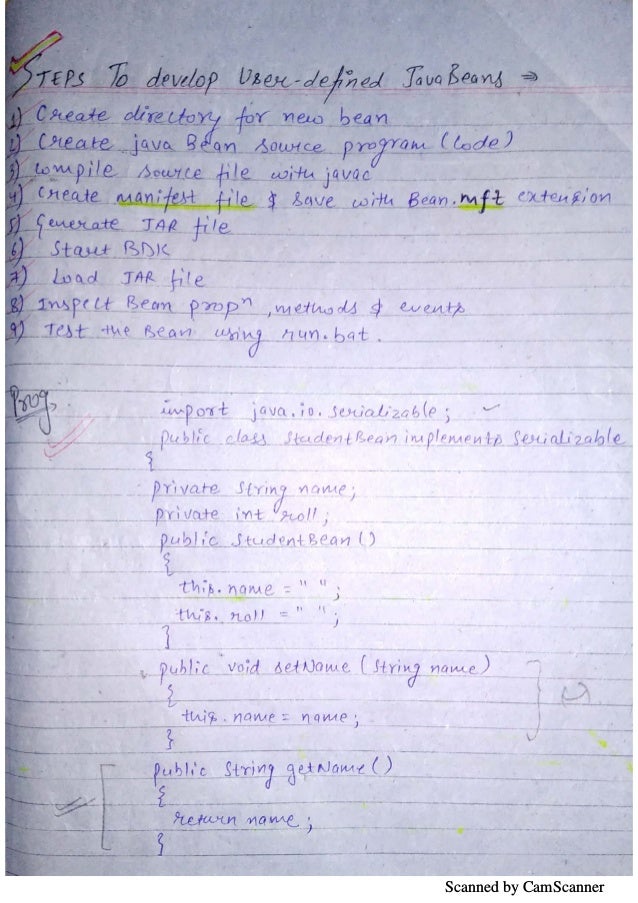 STEPS To develop User-defined JavaBeans ⇒
1) Create directory for new bean
2) Create java Bean source program (Code)
3) Compile source file with javac
4) Create manifest file & save with Bean.mft extension
5) Generate JAR file
6) Start BDK
7) Load JAR file
8) Inspect Bean propⁿ, methods & events
9) Test the Bean using run.bat.
Prog.
import java.io.serializable;
public class StudentBean implements Serializable
{
private String name;
private int roll;
public StudentBean()
{
this.name = " ";
this.roll = " ";
}
public void setName (String name)
{
this.name = name;
}
public String getName()
{
return name;
}
Scanned by CamScanner